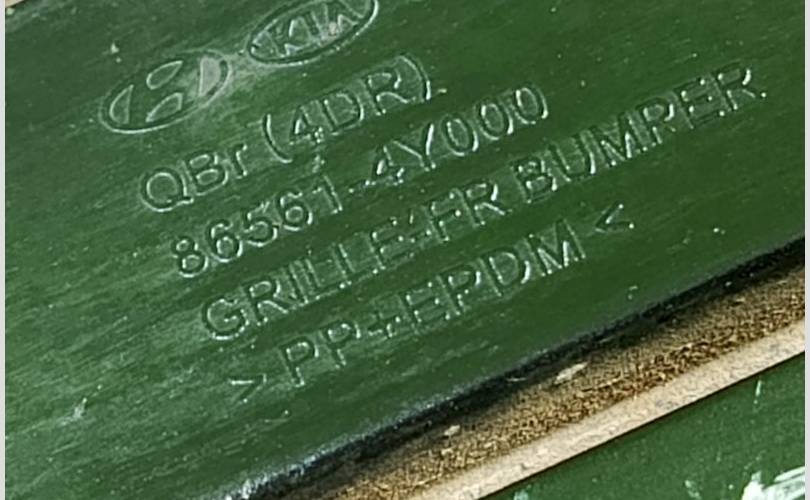 KIA
QBr (4DR)
86561-4Y000
GRILLE-FR BUMPER
>PP+EPDM<